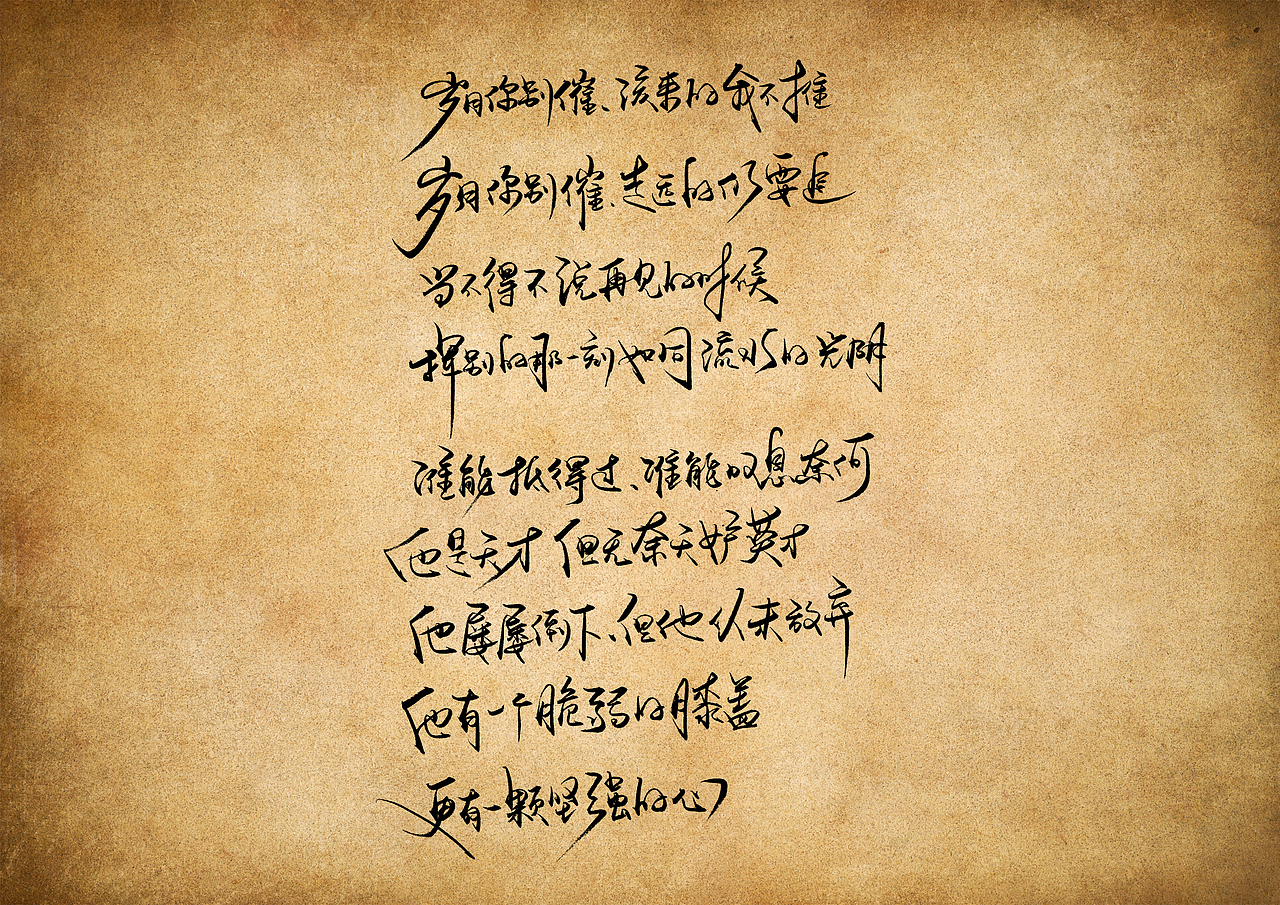 岁月你别催、该来的我不推
岁月你别催、走远的仍要追
当不得不说再见的时候
挥别的那一刻如同流水的光阴
谁能抵得过、谁能叹息奈何
他是天才 但无奈天妒英才
他屡屡倒下、但他从未放弃
他有一个脆弱的膝盖
更有一颗坚强的心